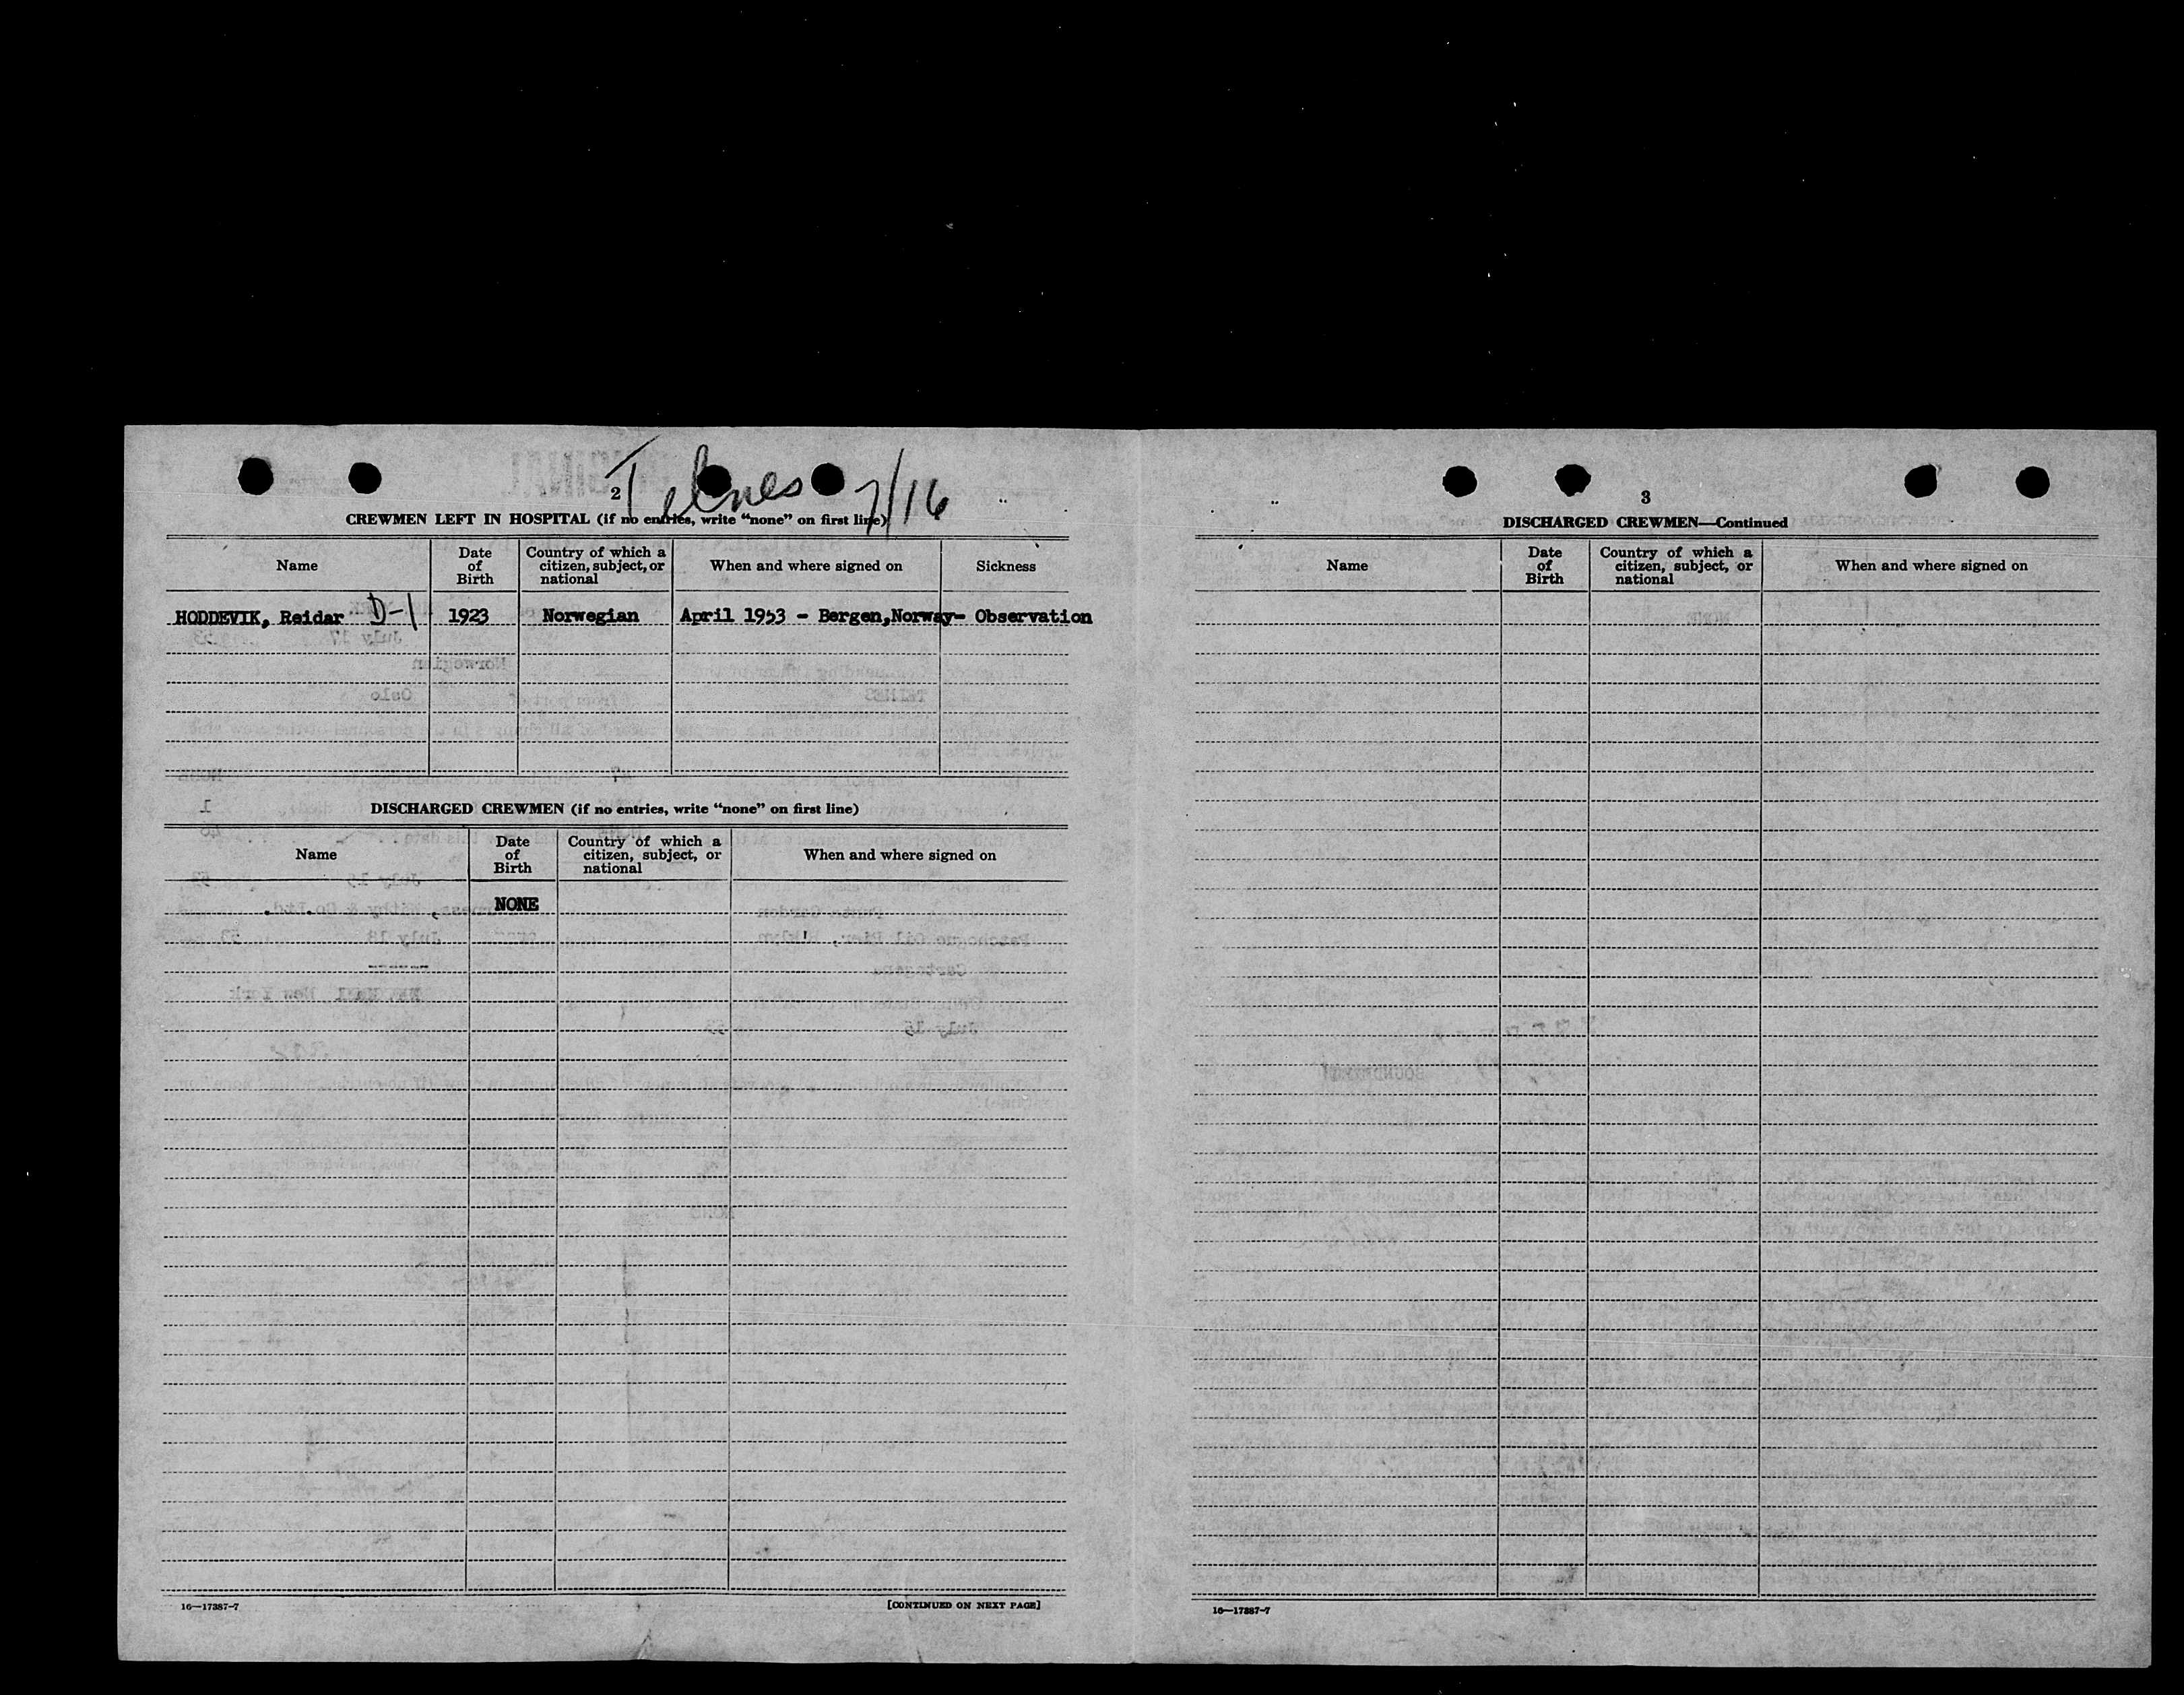 Telnes 7/16
2
CREWMEN LEFT IN HOSPITAL (if no entries, write “none” on first line)
Name
Date of Birth
Country of which a citizen, subject, or national
When and where signed on
Sickness
HODDEVIK, Reidar D-1 1923 Norwegian April 1953 - Bergen,Norway- Observation
DISCHARGED CREWMEN (if no entries, write “none” on first line)
Name
Date of Birth
Country of which a citizen, subject, or national
When and where signed on
NONE
16—17387-7
[CONTINUED ON NEXT PAGE]
3
DISCHARGED CREWMEN—Continued
Name
Date of Birth
Country of which a citizen, subject, or national
When and where signed on
16—17387-7